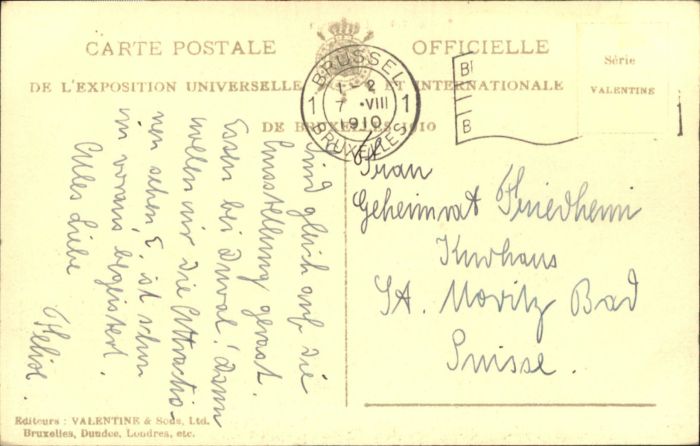 CARTE POSTALE OFFICIELLE
DE L'EXPOSITION UNIVERSELLE ET INTERNATIONALE
DE BRUXELLES 1910
Série
VALENTINE
BRUSSEL
1 - 2
1 7 · VIII 1
1910
BRUXELLES
B
B
Sind gleich auf die
Ausstellung gerast.
Essen bei Duval! Dann
wollen wir die Attractio-
nen sehen E. ist schon
im voraus begeistert.
Alles Liebe
Felix.
Frau
Geheimrat Friedheim
Kurhaus
St. Moritz Bad
Suisse.
Editeurs : VALENTINE & Sons, Ltd.
Bruxelles, Dundee, Londres, etc.